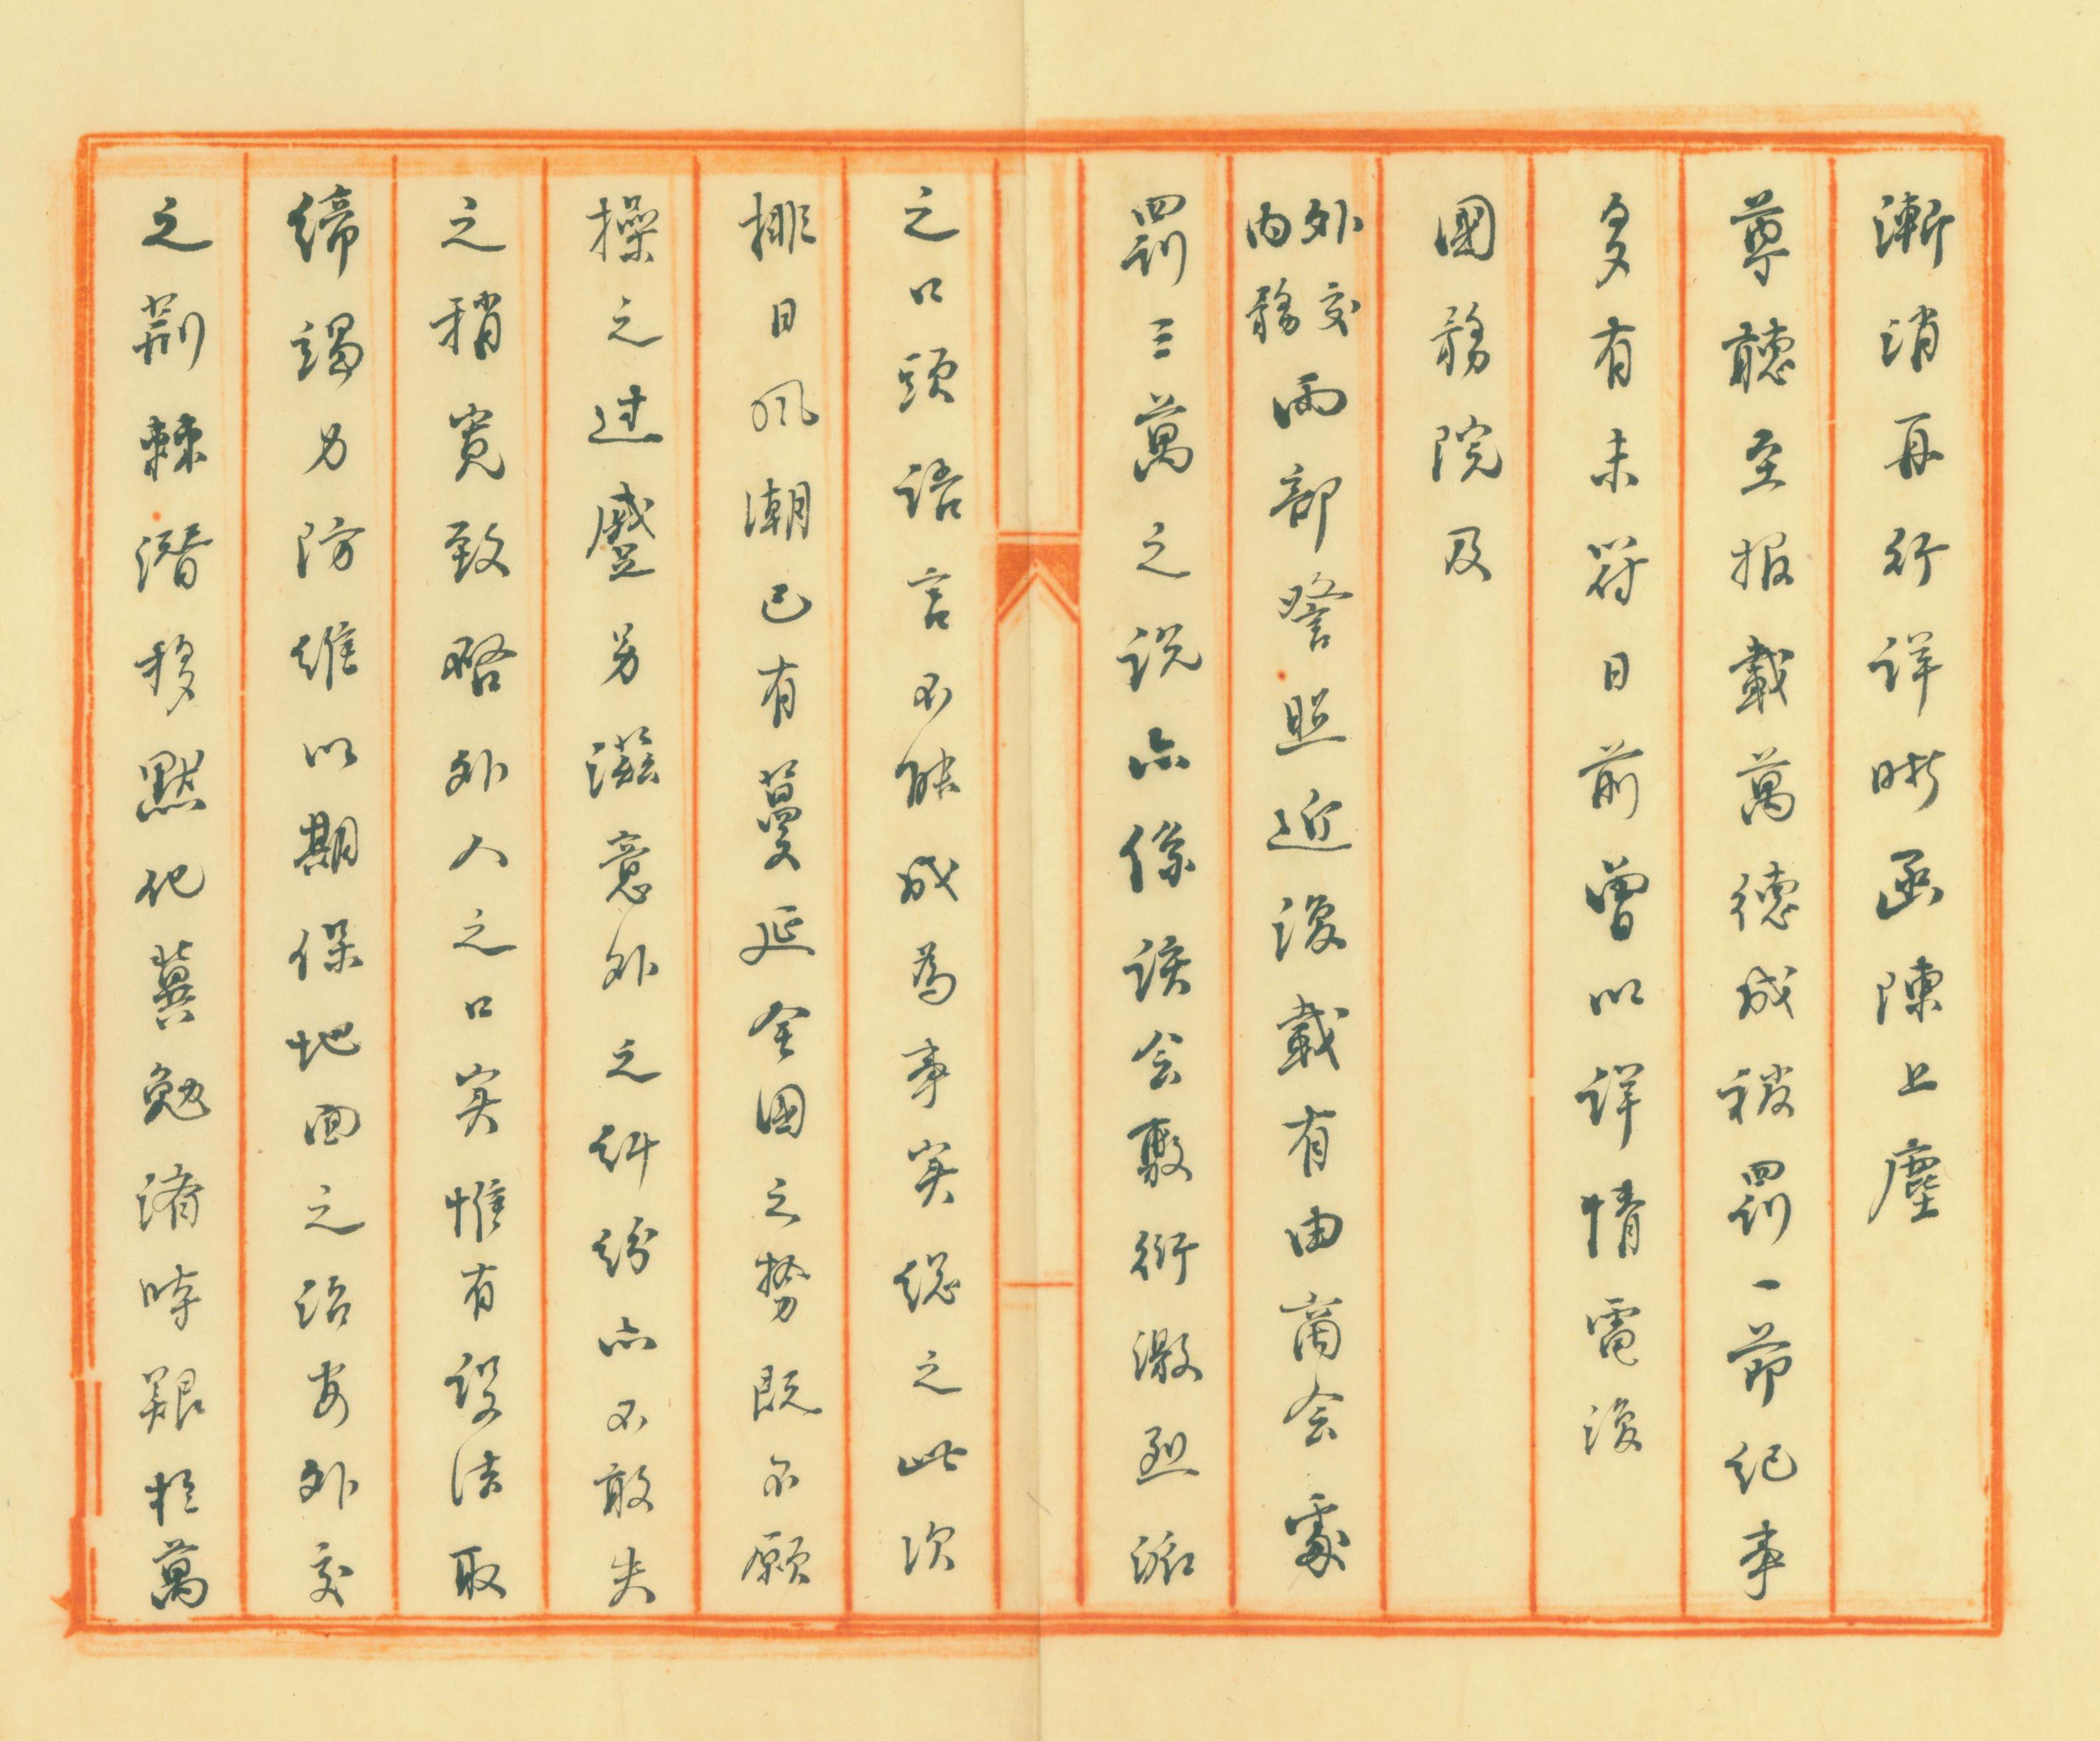 漸消再行詳晰函陳上塵
尊聽至报載萬德成被罰一節纪事
多有未符日前曾以詳情電復
國務院及
外交
内務
兩部詧照近復載有由商会處
罰三萬之说亦係该会敷衍激烈派
之口頭語言不能成為事实總之此次
排日风潮已有蔓延全国之势既不願
操之过蹙另滋意外之纠纷亦不敢失
之稍宽致啓外人之口实惟有设法取
缔竭力防維以期保地面之治安外交
之荆棘潜移默化冀勉济時艱於萬